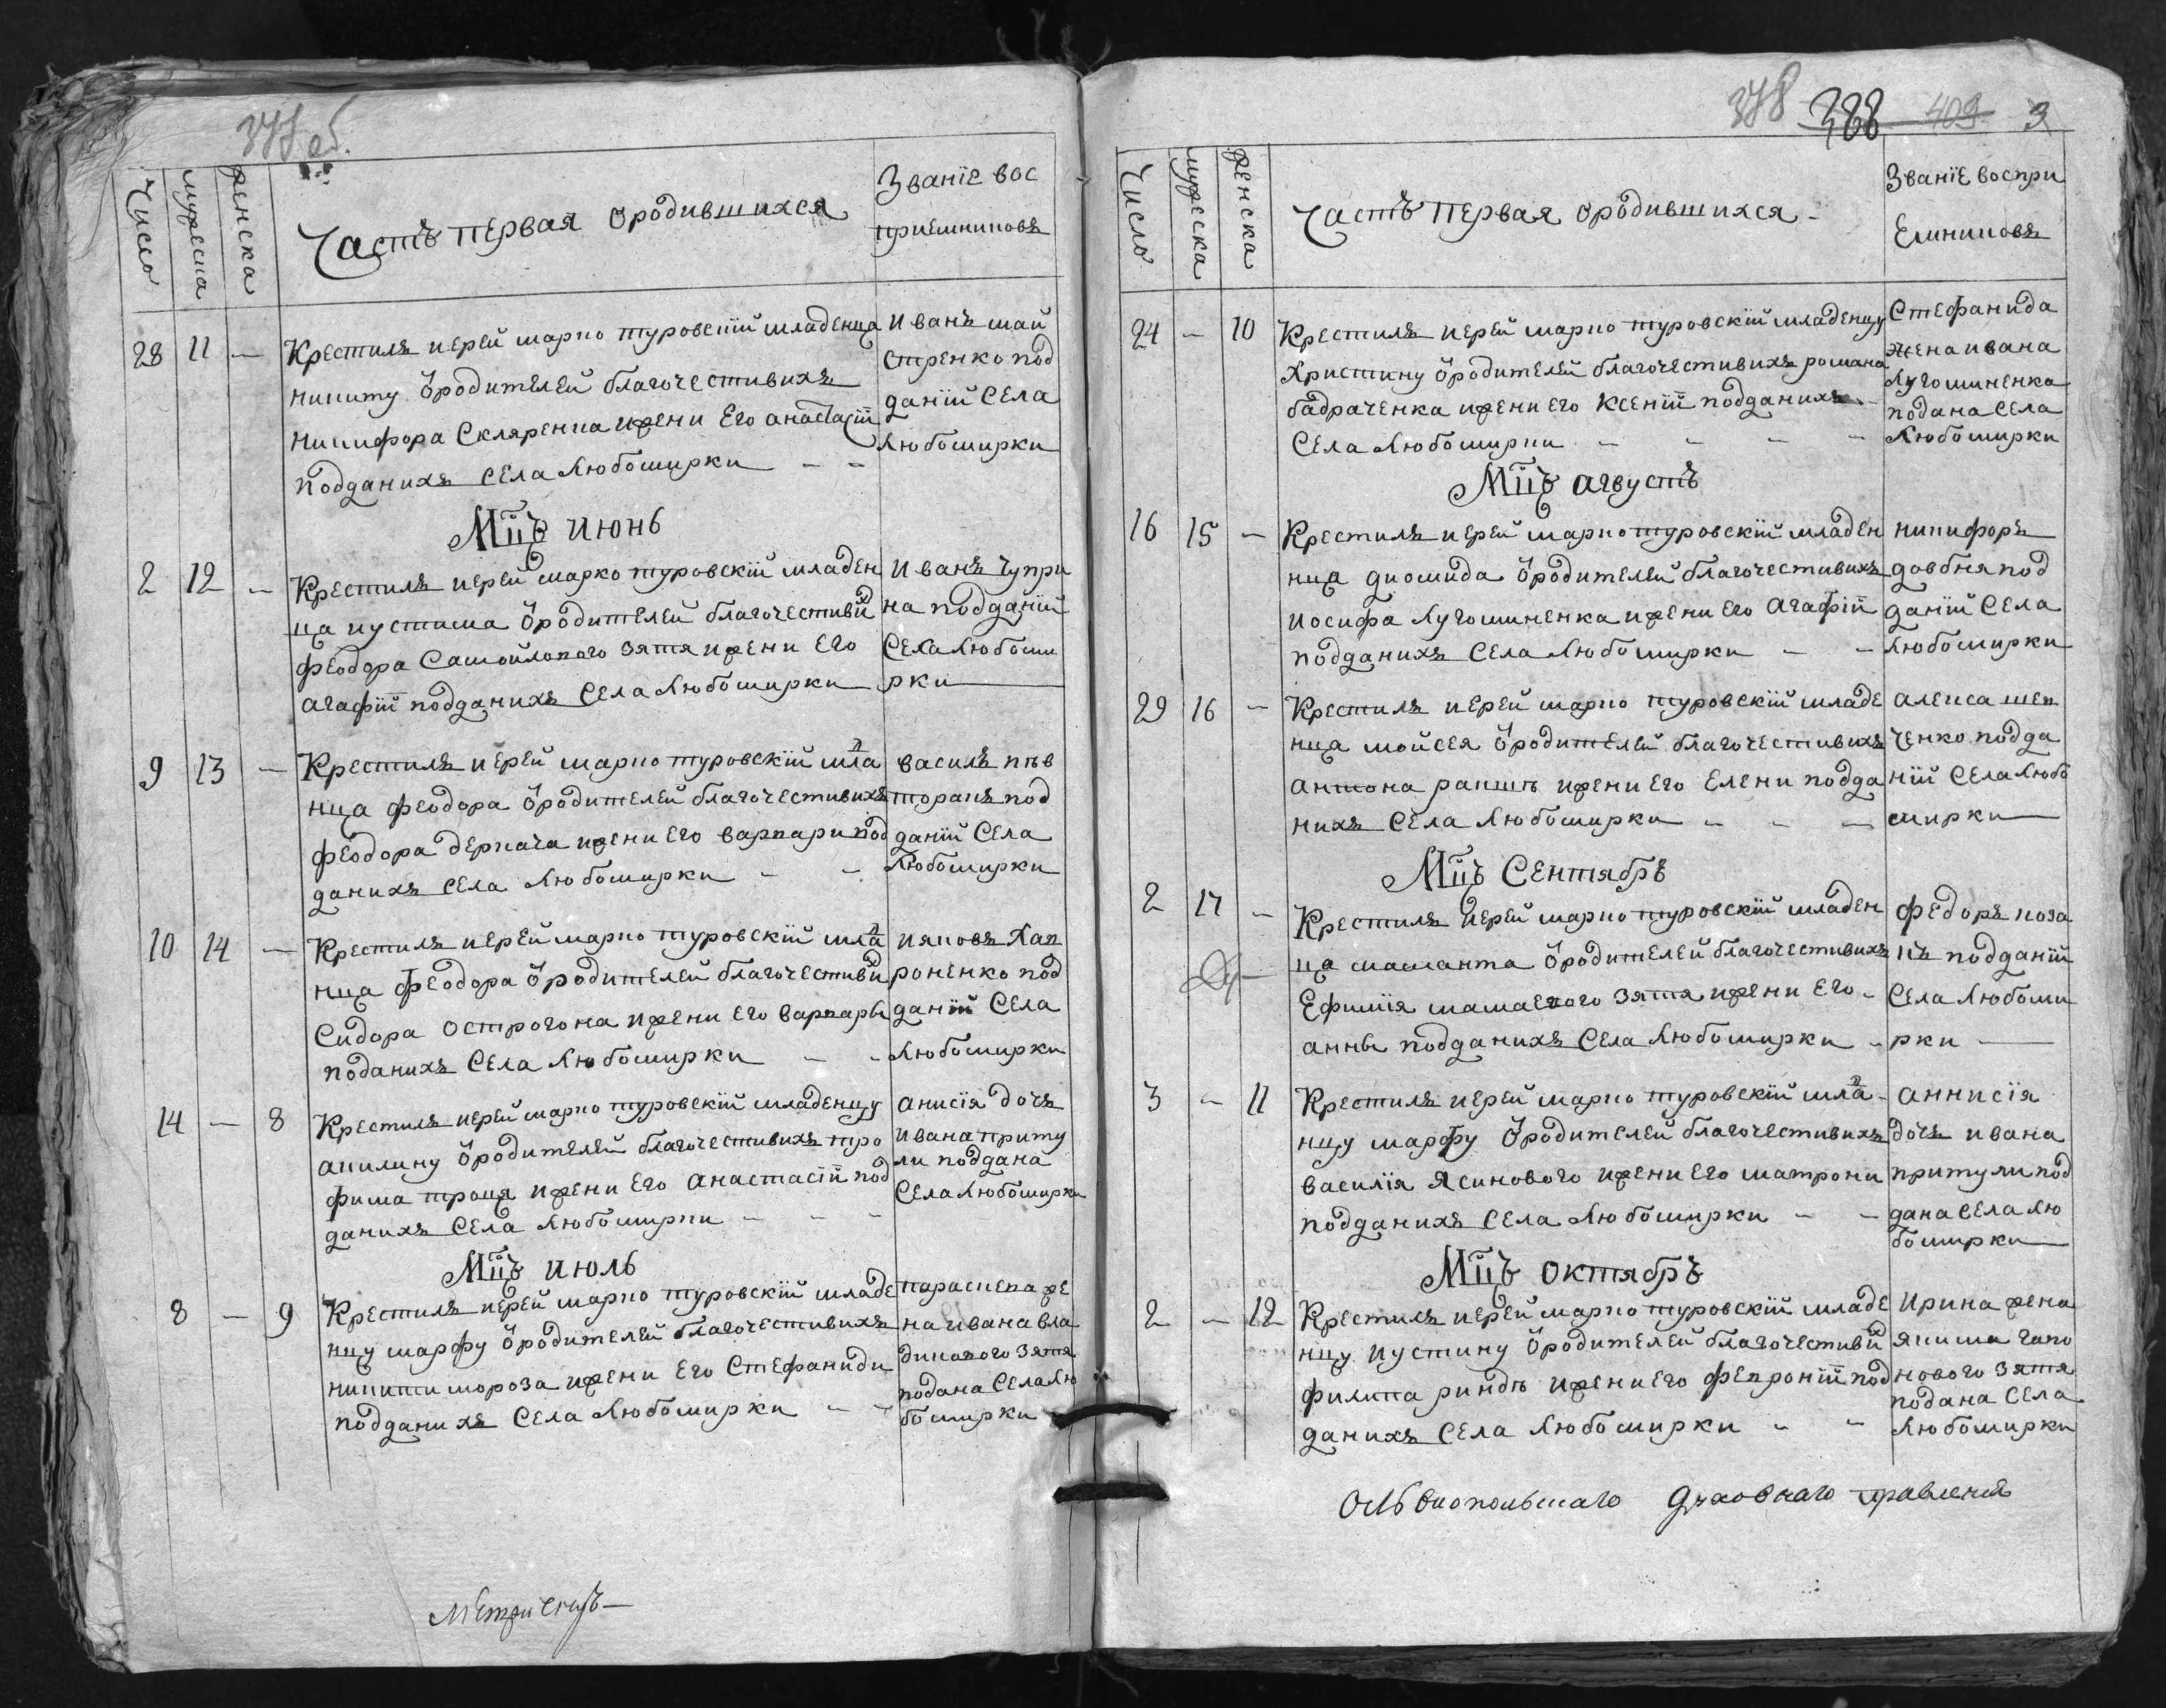 377 об.
Число
мужеска
женска
Часть первая ѿ родившихся
Званїе вос
приемниковъ
28 11 — Крестилъ иерей марко туровскїй младенца
никиту ѿ родителей благочестивихъ
никифора Скляренка и жени Его анастасїи
подданихъ села Любомирки — —
Иванъ май
стренко под
данїй Села
Любомирки
Мцъ июнь
2 12 — Крестилъ иерей марко туровскїй младен
ца иустима ѿ родителей благочестивих
феодора Самойлового зятя и жени Его
агафїи подданихъ Села Любомирки
Иванъ Чупри
на подданїй
Села Любоми
рки
9 13 — Крестилъ иерей марко туровскїй млад
нца феодора ѿ родителей благочестивихъ
феодора деркача и жени его варвари под
данихъ села Любомирки — —
василъ пѣв
торакъ под
данїй Села
Любомирки
10 14 — Крестилъ иерей марко туровскїй млад
нца феодора ѿ родителей благочестивих
Сидора острогона и жени его варвары
поданихъ Села Любомирки — —
ияковъ Хар
роненко под
данїй Села
Любомирки
14 — 8 Крестилъ иерей марко туровскїй младенцу
акилину ѿ родителей благочестивихъ тро
фима троця и жени Его Анастасїи под
данихъ Села Любомирки — — —
анисїя дочъ
Ивана приту
ли поддана
Села Любомирки
Мцъ июль
8 — 9 Крестилъ иерей марко туровскїй младе
нцу марфу ѿ родителей благочестивихъ
никити мороза и жени Его Стефаниди
подданихъ Села Любомирки — —
параскева же
на ивана вла
дикового зятя
подана Села Лю
бомирки
Метрическ—
378 388 409 3
Число
мужеска
женска
Часть первая ѿ родившихся —
Званїе воспри
Емниковъ
24 — 10 Крестилъ иерей марко туровскїй младенцу
христину ѿ родителей благочестивихъ романа
бадраченка и жени его Ксенїи подданихъ —
Села Любомирки — — — —
Стефанида
жена ивана
Лугоминенка
подана Села
Любомирки
Мцъ августъ
16 15 — Крестилъ иерей марко туровскїй младен
нца диомида ѿ родителей благочестивихъ
иосифа Лугоминенка и жени его агафїи
подданихъ Села Любомирки — —
никифоръ
довбня под
данїй Села
Любомирки
29 16 — Крестилъ иерей марко туровскїй младе
нца мойсея ѿ родителей благочестивихъ
антона рапшѣ и жени его Елени подда
нихъ Села Любомирки — — —
алекса шев
ченко подда
нїй Села Любо
мирки
Мцъ Сентябръ
2 17 — Крестилъ иерей марко туровскїй младен
ца маманта ѿ родителей благочестивихъ
Ефимїя мамаевого зятя и жени Его —
анны подданихъ Села Любомирки —
федоръ коза
къ подданїй
Села Любоми
рки
3 — 11 Крестилъ иерей марко туровскїй млад —
нцу марфу ѿ родителей благочестивихъ
василїя Ясинового и жени его матрони
подданихъ Села Любомирки — —
аннисїя
дочъ ивана
притули под
дана Села Лю
бомирки
Мцъ октябръ
2 — 12 Крестилъ иерей марко туровскїй младе
нцу иустину ѿ родителей благочестивих
филипа риндѣ и жени его февронїи под
данихъ Села Любомирки — —
Ирина жена
якима гапо
нового зятя
подана Села
Любомирки
Ольвиопольскаго духовнаго правления